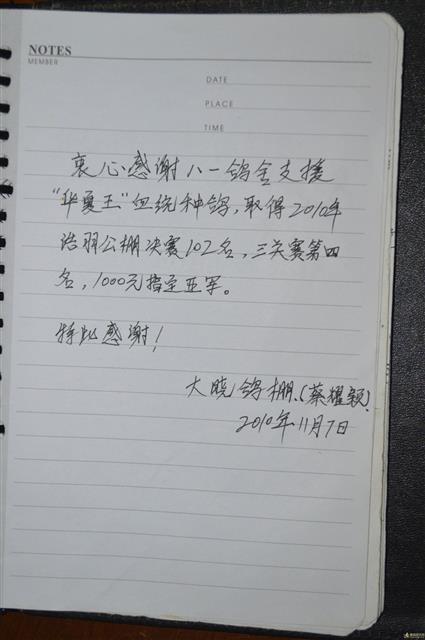 NOTES
MEMBER
DATE
PLACE
TIME
衷心感谢八一鸽舍支援
“华夏王”血统种鸽，取得2010年
浩羽公棚决赛102名，三关赛第四
名，1000元指定亚军。
特此感谢！
大晓鸽棚（蔡耀颖）
2010年11月7日